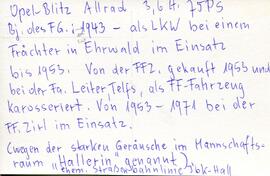 Opel-Blitz Allrad 3,6 H. 75PS
Bj. des FG.: 1943 - als LKW bei einem
Frächter in Ehrwald im Einsatz
bis 1953. Von der FFZ. gekauft 1953 und
bei der Fa. Leiter Telfs, als FF-Fahrzeug
karosseriert. Von 1953 - 1971 bei der
FF. Zirl im Einsatz.
(wegen der starken Geräusche im Mannschafts-
raum "Hallerin" genannt)
ehem. Straßenbahnlinie Ibk-Hall